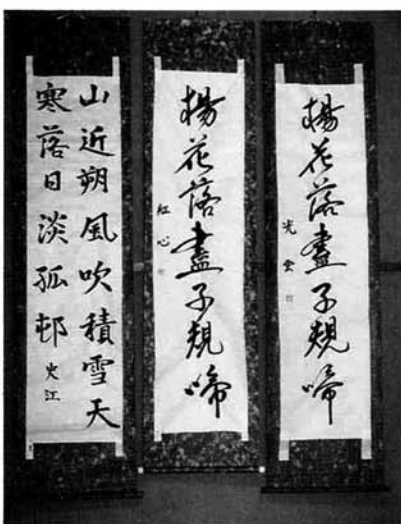 楊花落盡子規啼
光雲
楊花落盡子規啼
紅心
山近朔風吹積雪天
寒落日淡孤邨
火江